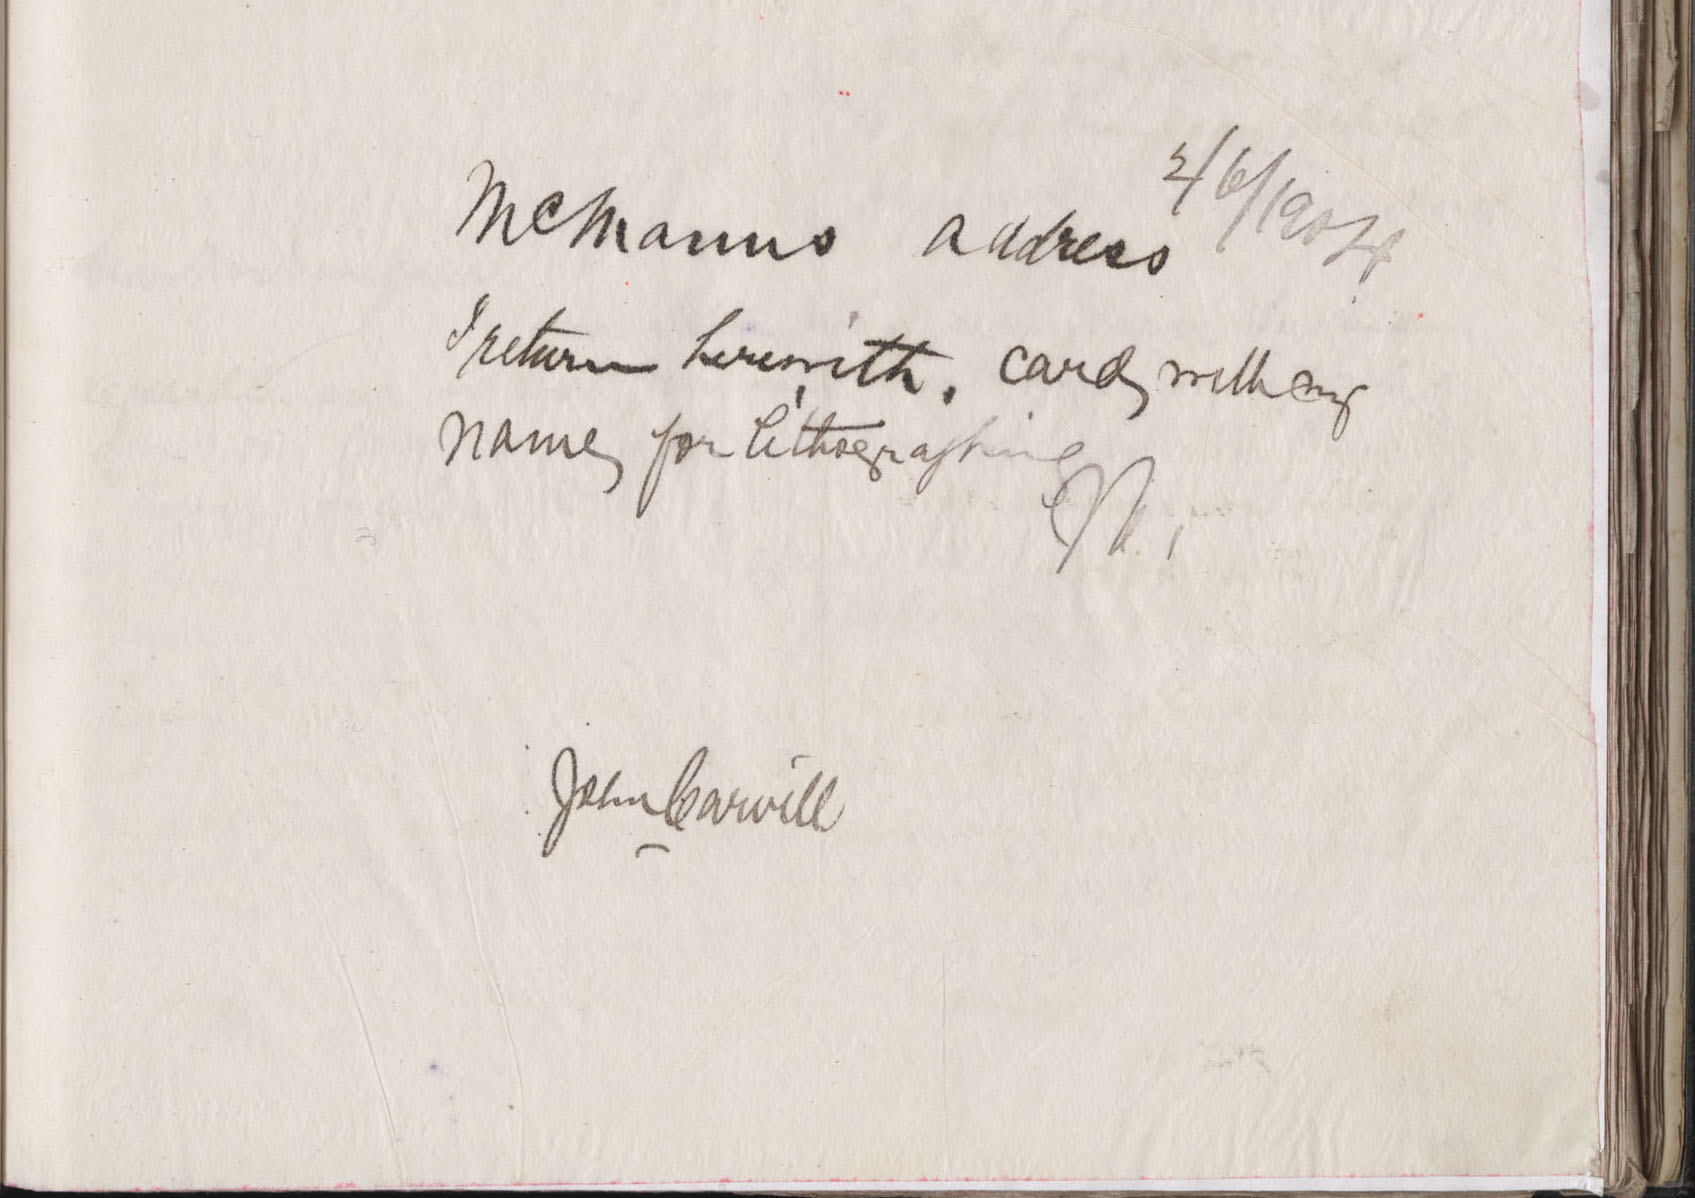 2/6/1904
McManus address
I return herewith, card, with my
name, for lithographing
John Carvill